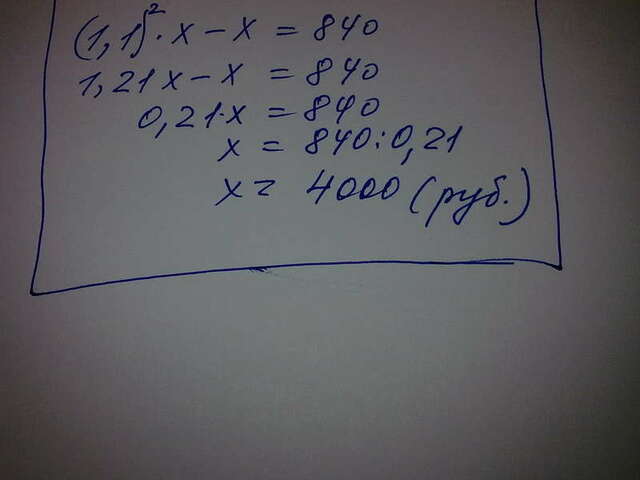 (1,1)²·x-x=840
1,21x-x=840
0,21·x=840
x=840:0,21
x=4000(руб.)